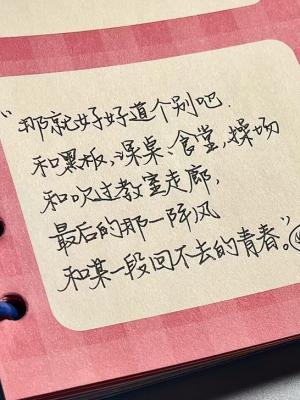 “那就好好道个别吧.
和黑板、课桌、食堂、操场
和吹过教室走廊，
最后的那一阵风
和某一段回不去的青春。”